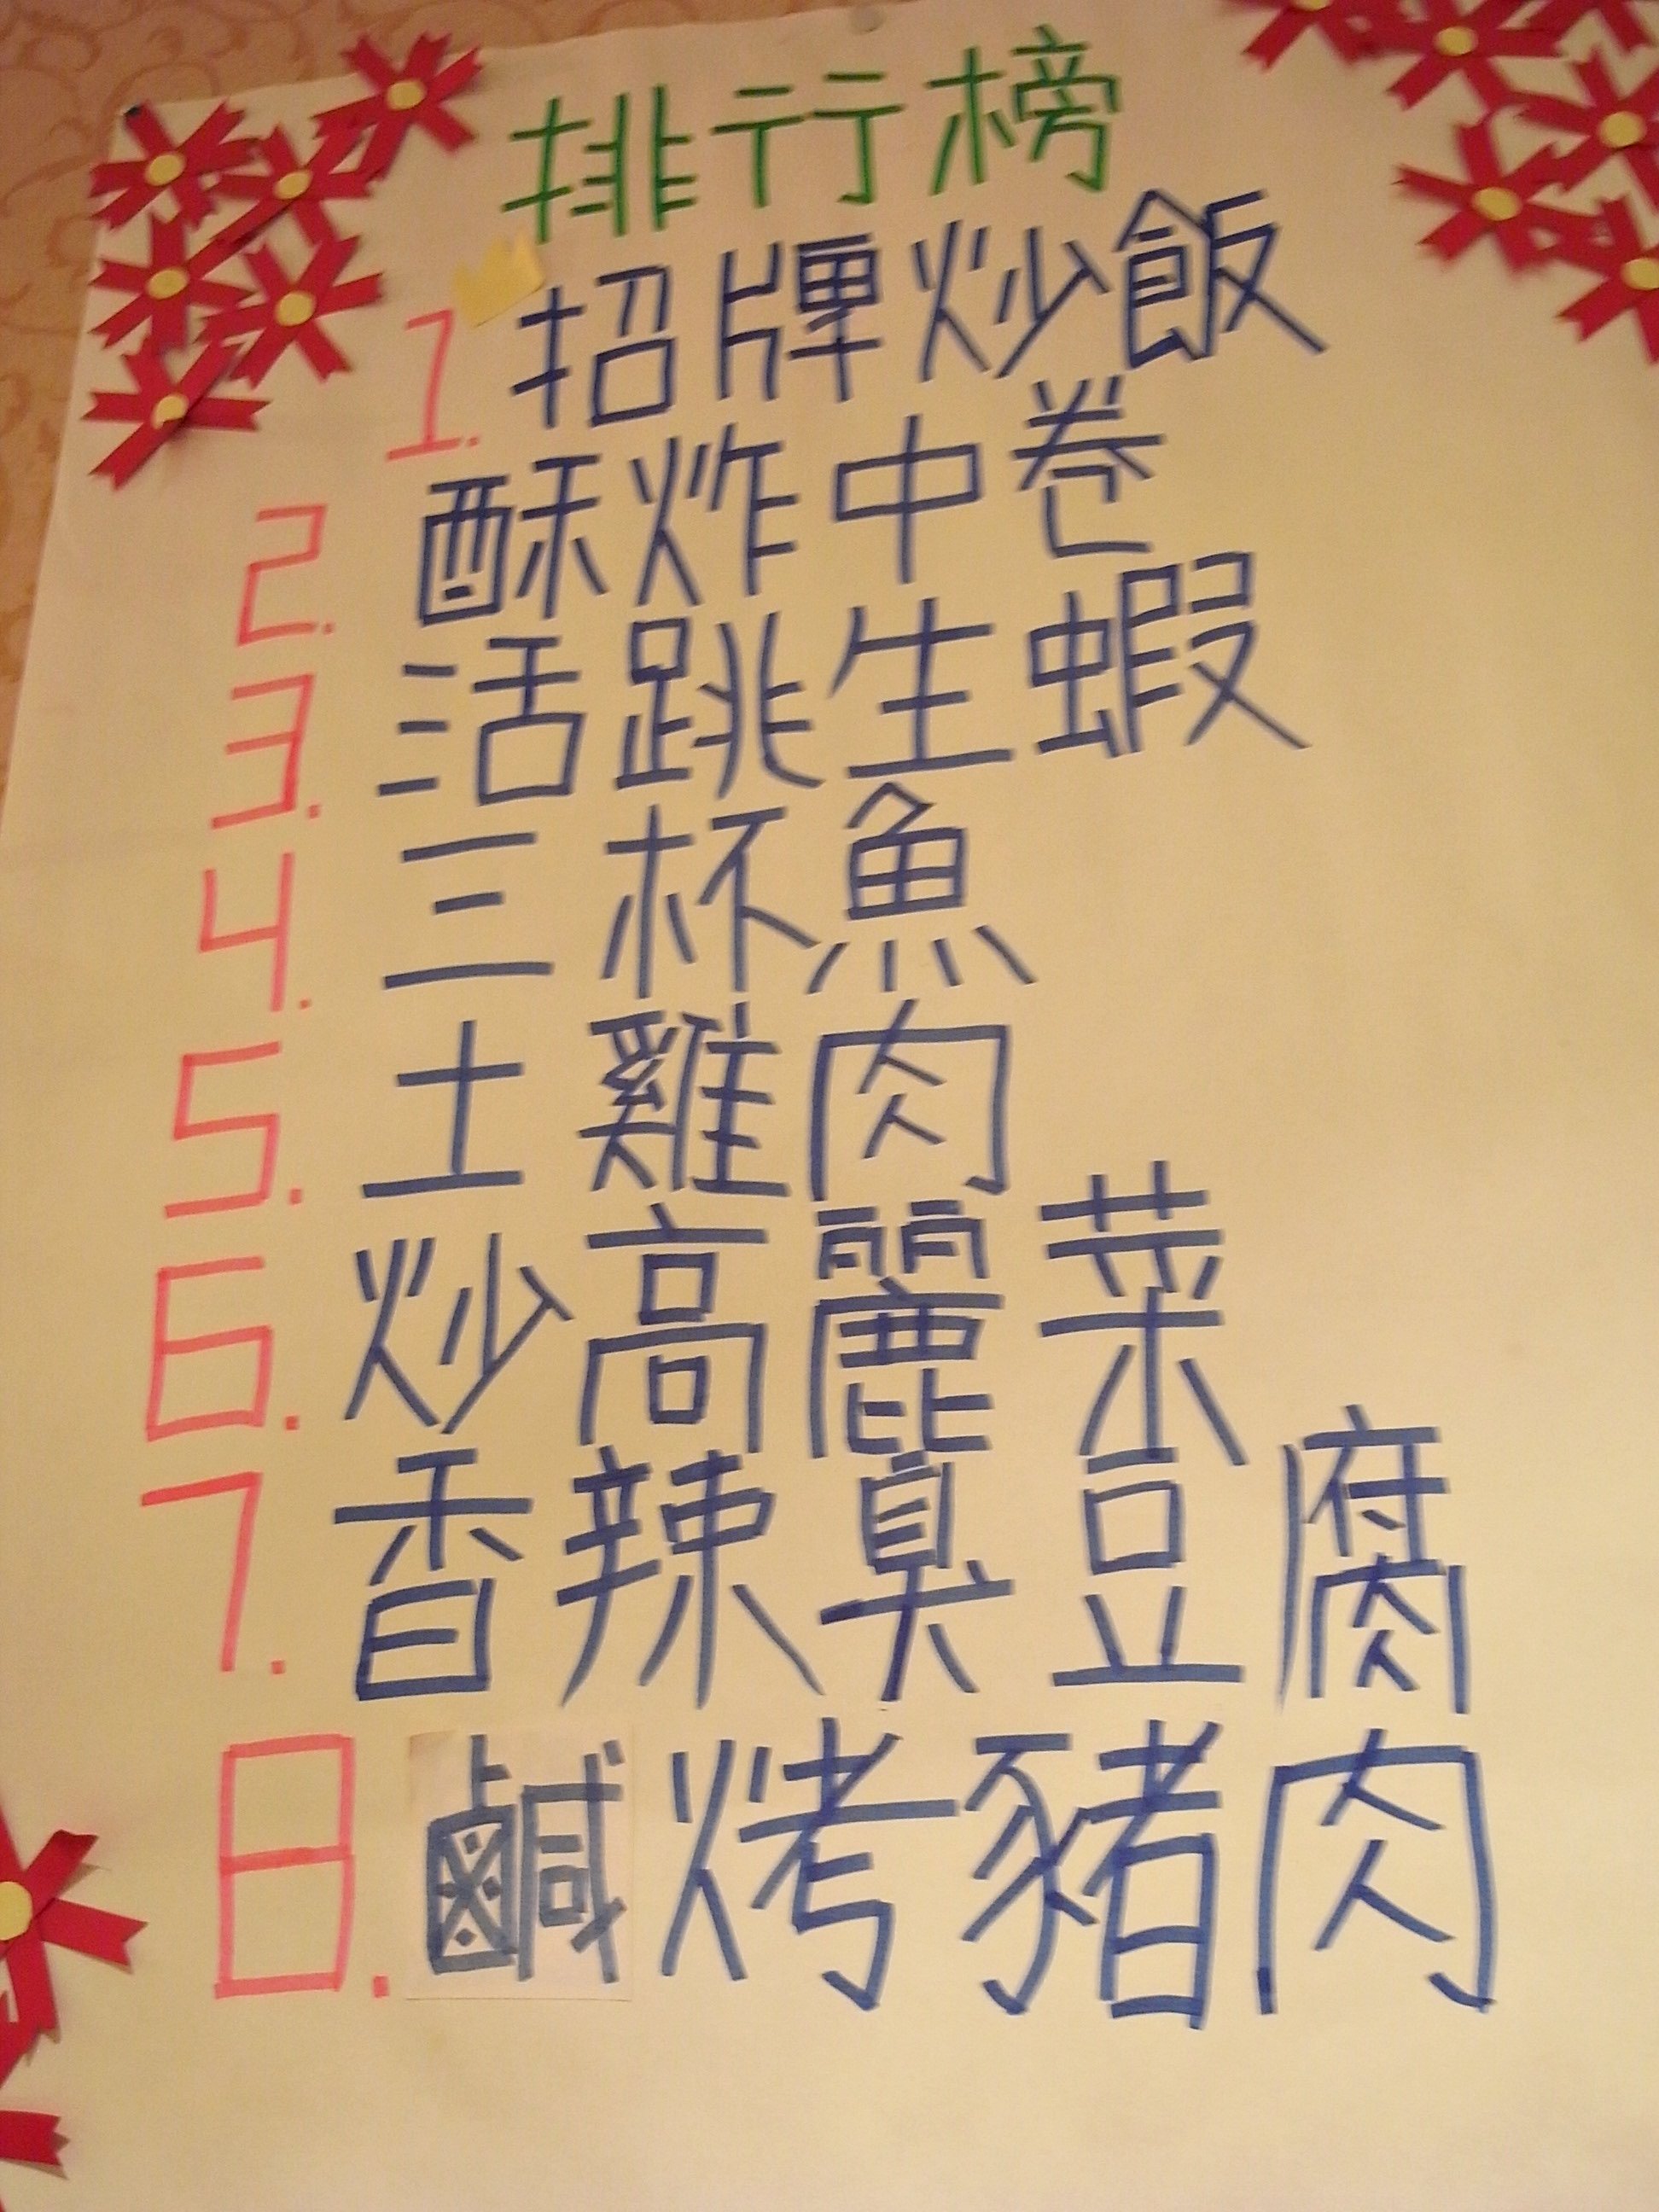 排行榜
1. 招牌炒飯
2. 酥炸中卷
3. 活跳生蝦
4. 三杯魚
5. 土雞肉
6. 炒高麗菜
7. 香辣臭豆腐
8. 鹹烤豬肉